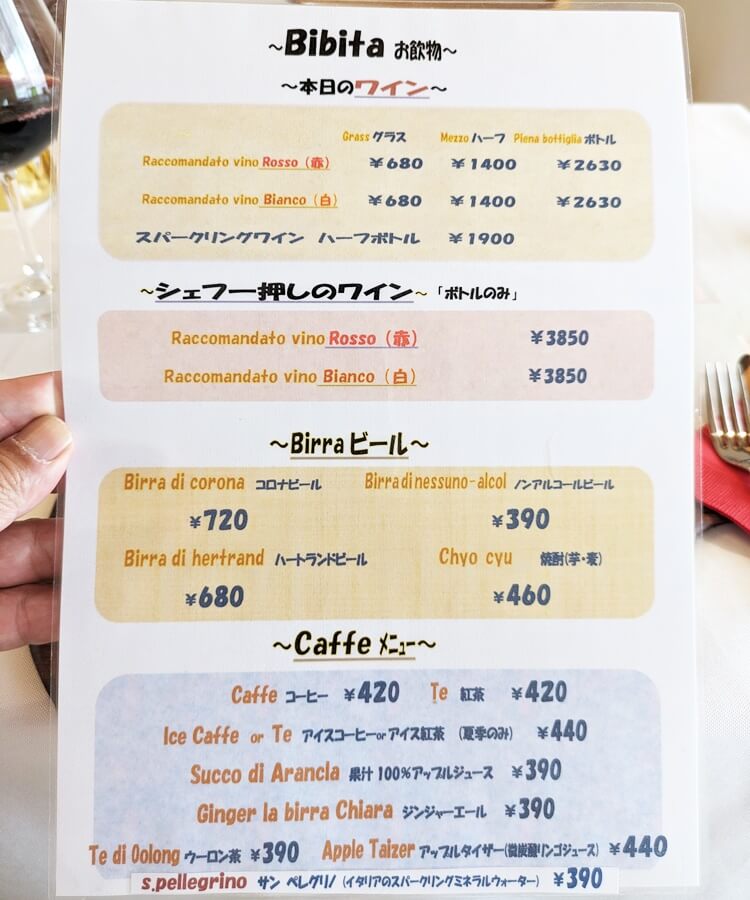 ~Bibita お飲物~
~本日のワイン~
Grass グラス Mezzo ハーフ Piena bottiglia ボトル
Raccomandato vino Rosso (赤) ¥680 ¥1400 ¥2630
Raccomandato vino Bianco (白) ¥680 ¥1400 ¥2630
スパークリングワイン ハーフボトル ¥1900
~シェフ一押しのワイン~「ボトルのみ」
Raccomandato vino Rosso (赤) ¥3850
Raccomandato vino Bianco (白) ¥3850
~Birra ビール~
Birra di corona コロナビール Birra di nessuno-alcol ノンアルコールビール
¥720 ¥390
Birra di hertrand ハートランドビール Chyo cyu 焼酎(芋・麦)
¥680 ¥460
~Caffe メニュー~
Caffe コーヒー ¥420 Te 紅茶 ¥420
Ice Caffe or Te アイスコーヒーorアイス紅茶 (夏季のみ) ¥440
Succo di Arancla 果汁100%アップルジュース ¥390
Ginger la birra Chiara ジンジャーエール ¥390
Te di Oolong ウーロン茶 ¥390 Apple Taizer アップルタイザー(微炭酸リンゴジュース) ¥440
s.pellegrino サン ペレグリノ (イタリアのスパークリングミネラルウォーター) ¥390